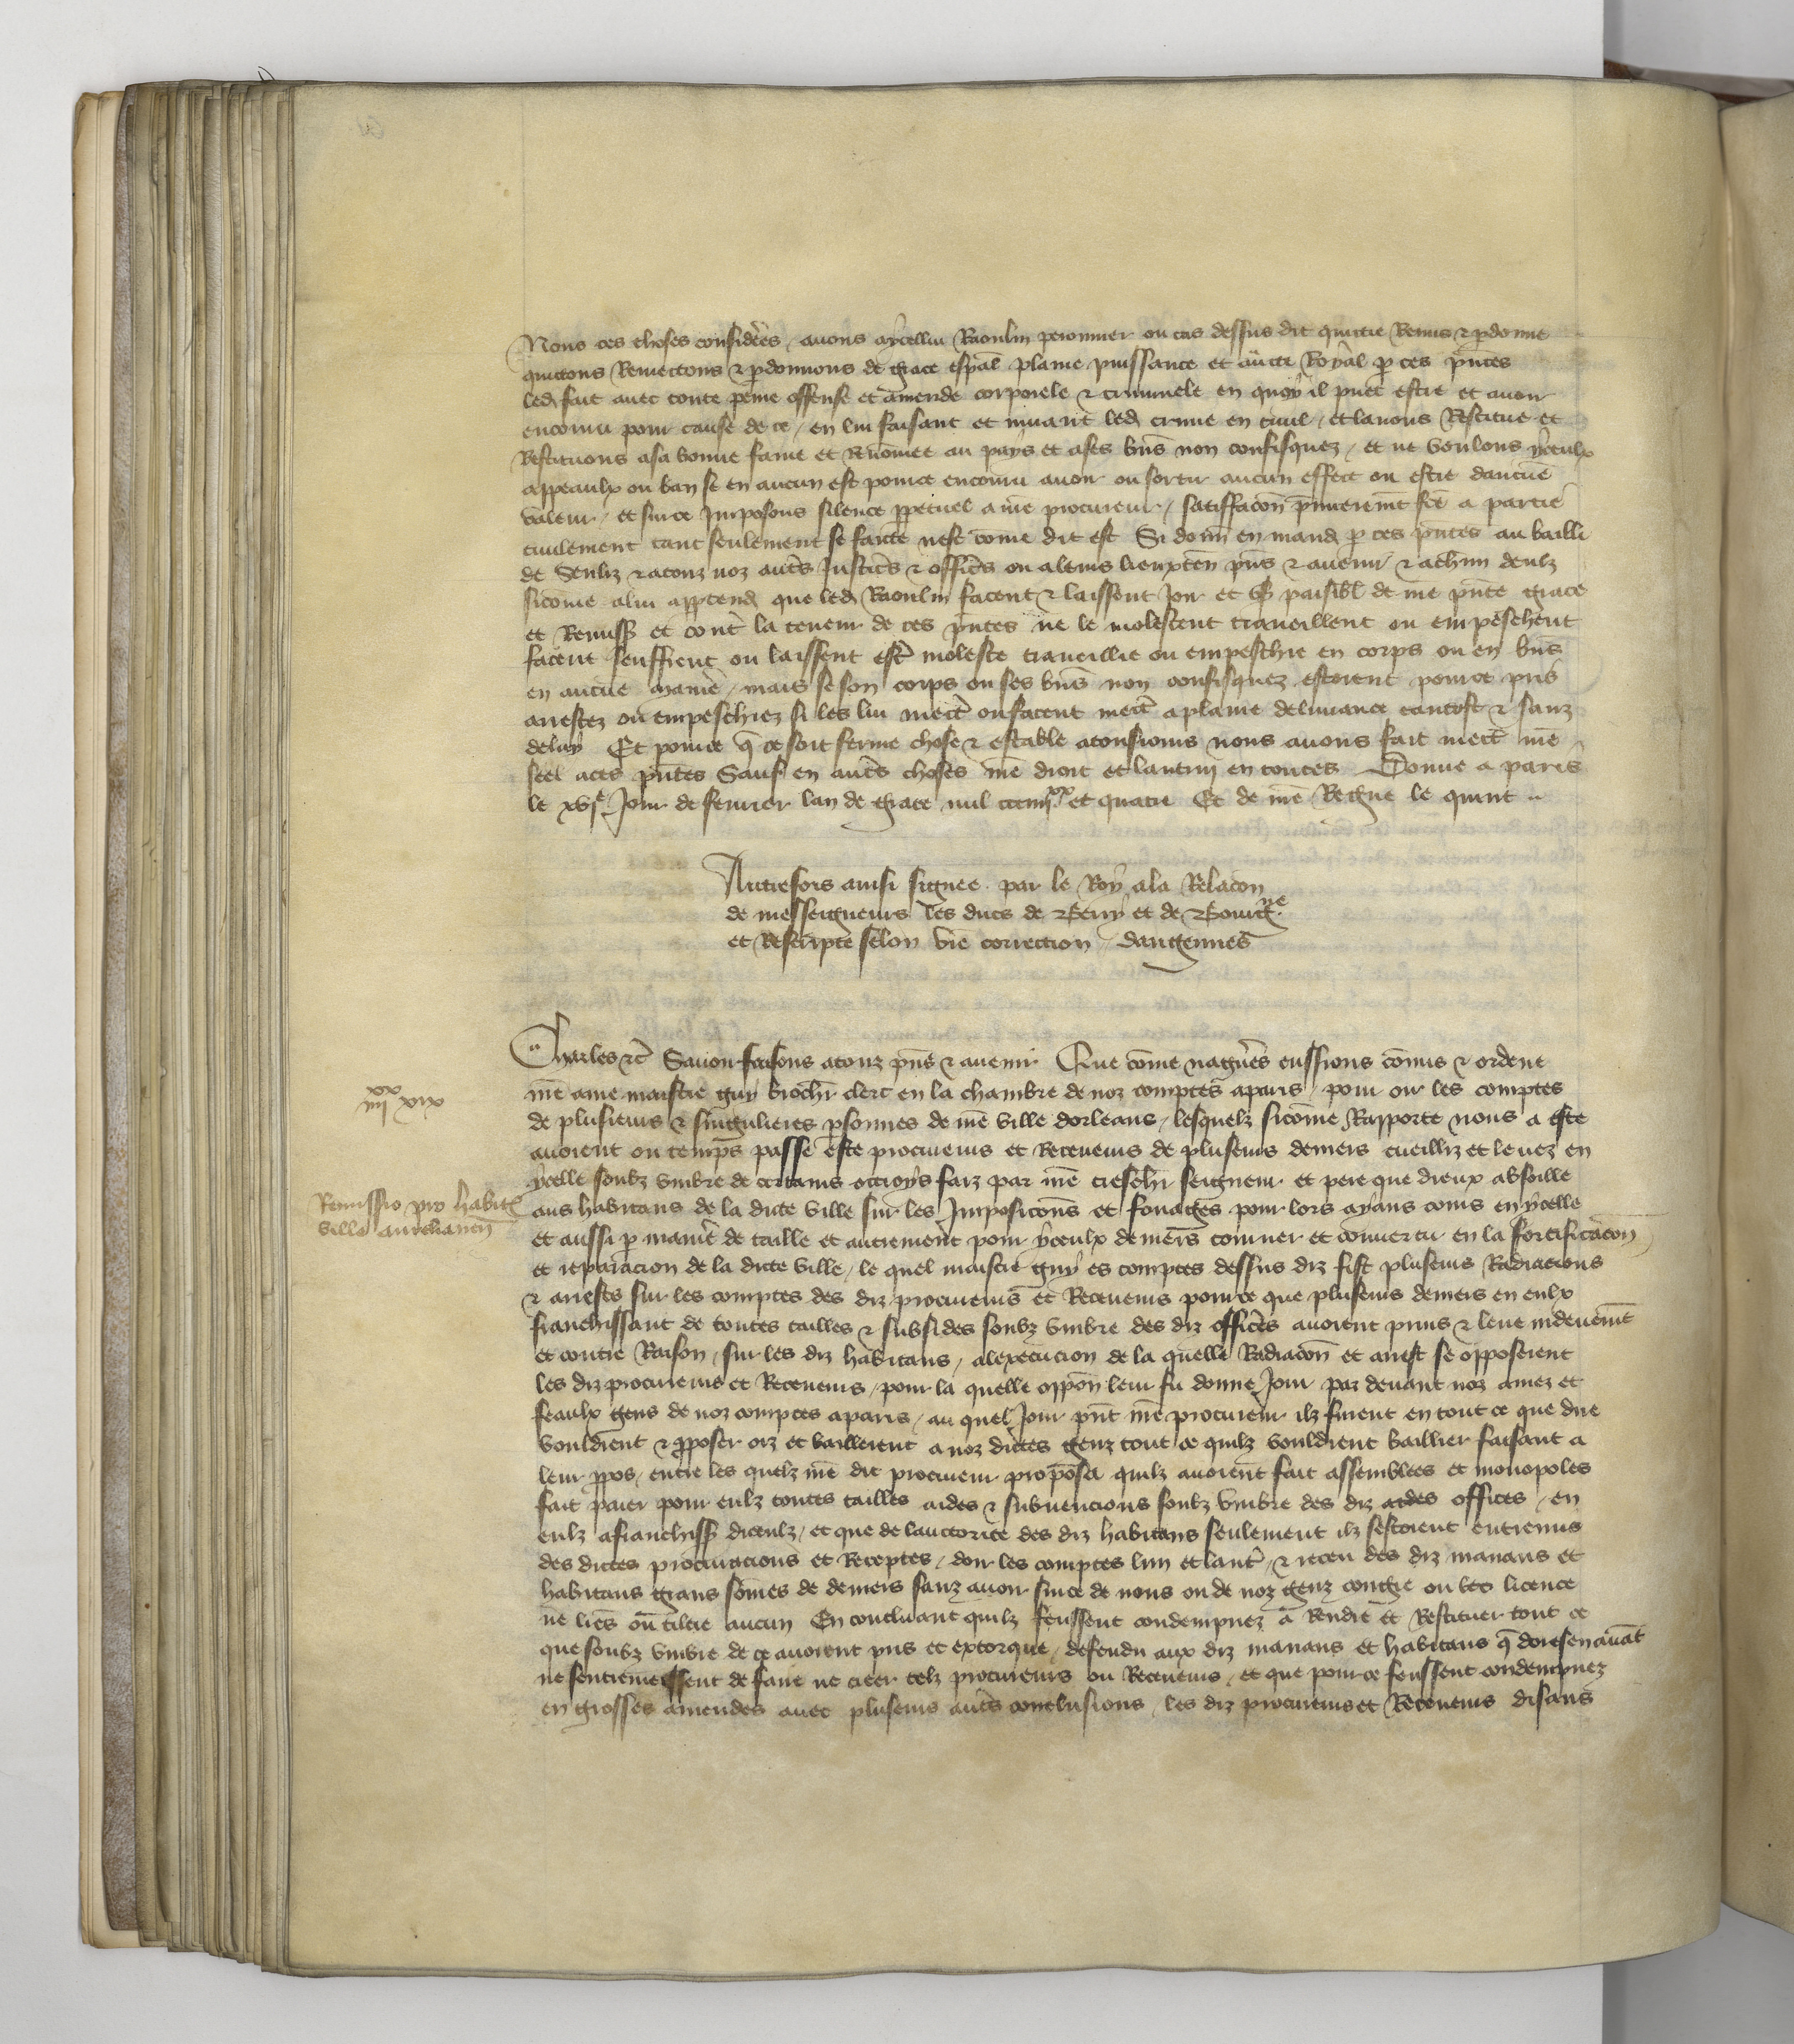 Nous ces choses considerés avons a ycellui Raoulin peronnier ou cas dessus dit quictie Remis & pdonne
quictons Remectons & pdonnons de grace espal plaine puissance et aucte Royal p ces pntes
led fait avec toute peine offense et amende corporele & criminele en quoy il puet estre et avoir
encouru pour cause de ce / en lui faisant et muant led crime en civil / et lavons Restitue et
Restituons a sa bonne fame et Renomee au pays et a ses biens non confisquez / et ne voulons yceulx
appeaulx ou ban se en aucun est pource encouru avoir ou sortir aucun effect ou estre daucune
valeur / et sur ce Imposons silence ppetuel a nre procureur / satisfacon pmierement fcte a partie
civilement tant seulement se faicte nest come dit est Si donn en mand p ces pntes au bailli
de Senliz & a touz noz autes Justices & offices ou a leurs lieuxten pns & avenir & a chun deulz
sicome a lui apptend que led Raoulin facent & laissent Joir et user paisibl de nre pnte grace
et Remiss et contre la teneur de ces pntes ne le molestent traveillent ou empeschent
facent seuffrent ou laissent estre moleste traveillie ou empeschie en corps ou en biens
en aucune maniere / mais se son corps ou ses biens non confisquez estoient pource pris
arrestez ou empeschiez si les lui mecte ou facent mecte a plaine delivrance tantost & sanz
delay Et pource q ce soit ferme chose & estable a tousjours nous avons fait mecte nre
seel a ces pntes Sauf en autes choses nre droit et lautruy en toutes Donne a paris
le xvje Jour de fevrier lan de grace mil ccc iiijxx et quatre Et de nre Regne le quint
Autresfois ainsi signee par le Roy a la Relacon
de messeigneurs les ducs de Berry et de Bourgne
et Rescripte selon vre correction dangennes
Charles &c Savoir faisons a touz pns & avenir Que come nagueres eussions comis & ordene
nre ame maistre guy brochr clerc en la chambre de noz comptes a paris / pour oir les comptes
de plusieurs & singulieres psonnes de nre ville dorleans / lesquelz sicome Rapporte nous a este
avoient ou temps passe este procureurs et Receveurs de pluseurs deniers cueilliz et levez en
ycelle soubz umbre de certains octroys faiz par nre treschr seigneur et pere que dieux absoille
aus habitans de la dicte ville sur les Imposicons et fouages pour lors ayans cours en ycelle
et aussi p maniere de taille et autrement pour yceulx deniers tourner et convertir en la fortificacon
et reparacion de la dicte ville / le quel maistre guy es comptes dessus diz fist pluseurs Radiacions
& arrests sur les comptes des diz procureurs et Receveurs pource que pluseurs deniers en eulx
franchissant de toutes tailles & subsides soubz umbre des diz offices avoient prins & leve indeuemt
et contre Raison / sur les diz habitans / a lexecucion de la quelle Radiacon et arrest se opposerent
les diz procureurs et Receveurs / pour la quelle oppon leur fu donne Jour par devant noz amez et
feaulx gens de noz comptes a paris / au quel Jour pnt nre procureur ilz furent en tout ce que dire
vouldrent & pposer oiz et baillerent a noz dictes genz tout ce quilz vouldrent baillier faisant a
leur ppos / entre les quelz nre dit procureur proposa quilz avoient fait assemblees et monopoles
fait paier pour eulz toutes tailles aides & subvencions soubz umbre des diz aides offices / en
eulz afranchiss diceulz / et que de lauctorite des diz habitans seulement ilz sestoient entremis
des dictes procuracions et Receptes / doir les comptes lun et lautre / & receu des diz manans et
habitans grans somes de deniers sanz avoir sur ce de nous ou de noz genz congie ou licence
ne lres ou tiltre aucun En concluant quilz feussent condempnez a Rendre et Restituer tout ce
que soubz umbre de ce avoient pris et extorque / defendu aux diz manans et habitans q doresenavat
ne sentremeissent de faire ne creer telz procureurs ou Receveurs / et que pour ce feussent condempnez
en grosses amendes avec pluseurs autes conclusions / les diz procureurs et Receveurs disans
iiijxx xix
Remissio pro habit
ville aurelianen